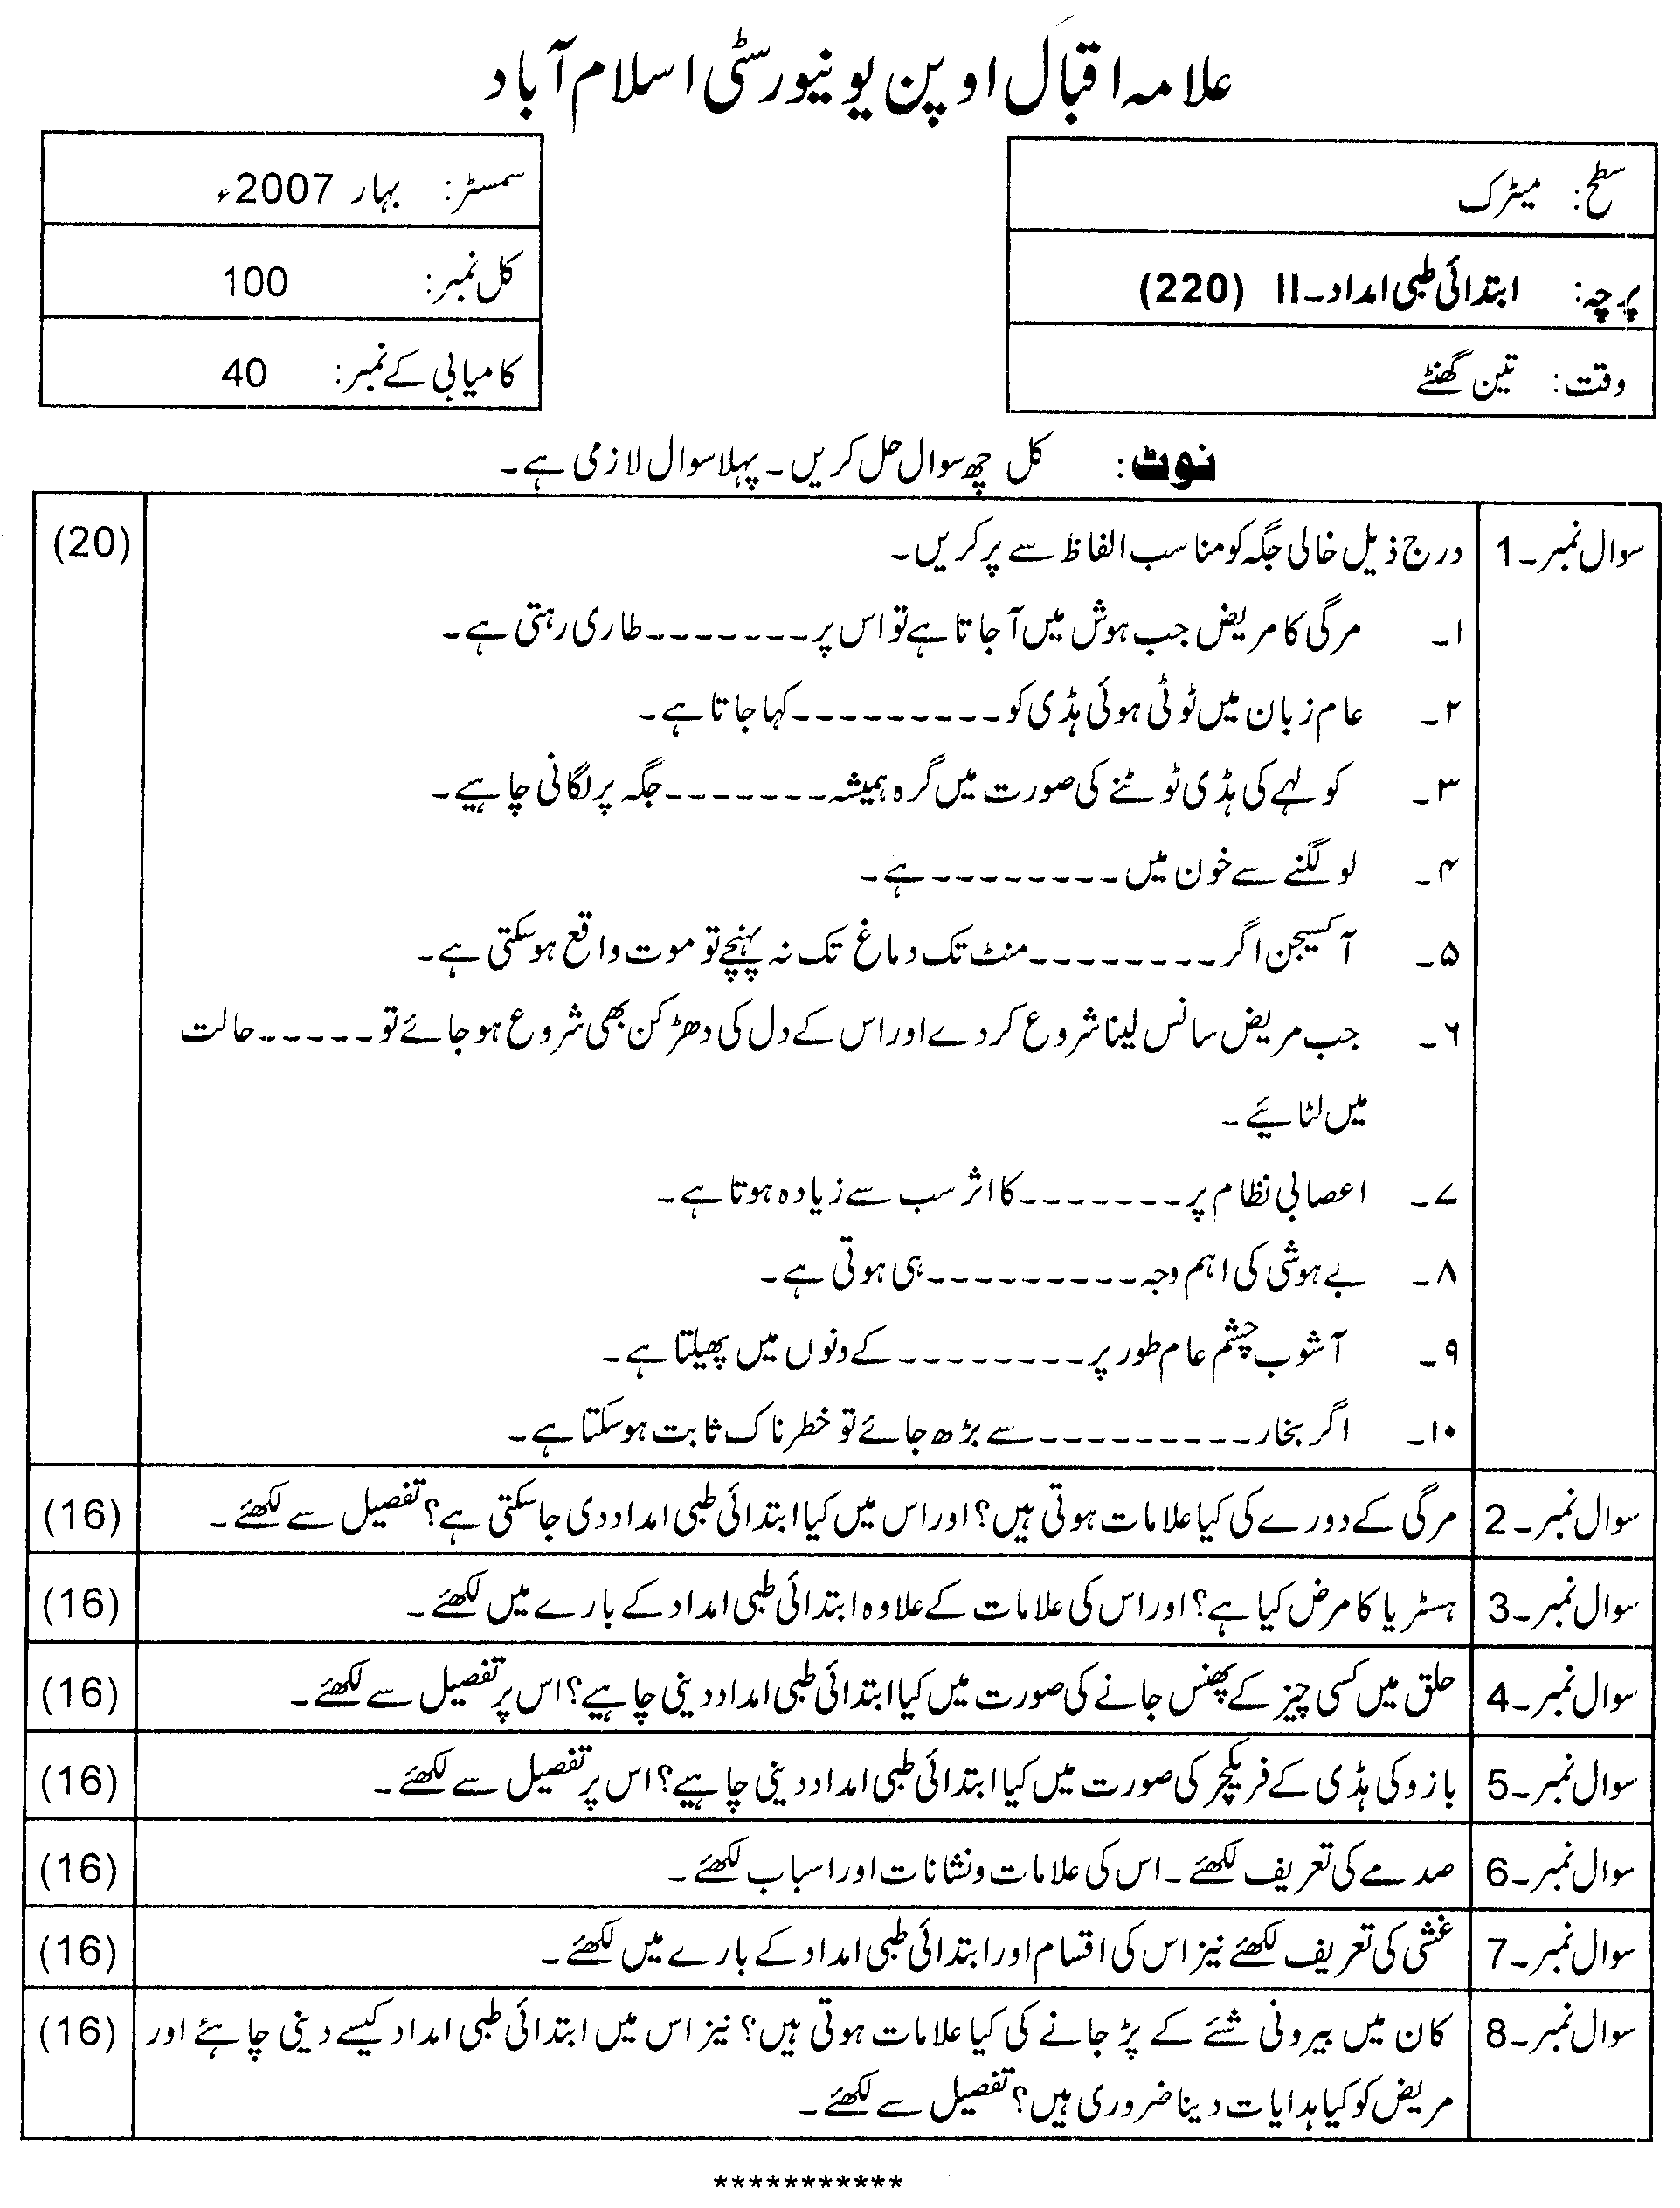 علامہ اقبال اوپن یونیورسٹی اسلام آباد
سطح: میٹرک
سمسٹر: بہار 2007ء
پرچہ: ابتدائی طبی امداد۔II (220)
کل نمبر: 100
وقت: تین گھنٹے
کامیابی کے نمبر: 40
نوٹ: کل چھ سوال حل کریں۔ پہلا سوال لازمی ہے۔
سوال نمبر۔1 درج ذیل خالی جگہ کو مناسب الفاظ سے پر کریں۔ (20)
۱۔ مرگی کا مریض جب ہوش میں آ جاتا ہے تو اس پر-------طاری رہتی ہے۔
۲۔ عام زبان میں ٹوٹی ہوئی ہڈی کو---------کہا جاتا ہے۔
۳۔ کولہے کی ہڈی ٹوٹنے کی صورت میں گرہ ہمیشہ-------جگہ پر لگانی چاہیے۔
۴۔ لو لگنے سے خون میں--------ہے۔
۵۔ آکسیجن اگر--------منٹ تک دماغ تک نہ پہنچے تو موت واقع ہو سکتی ہے۔
۶۔ جب مریض سانس لینا شروع کر دے اور اس کے دل کی دھڑکن بھی شروع ہو جائے تو-----حالت
میں لٹائیے۔
۷۔ اعصابی نظام پر-------کا اثر سب سے زیادہ ہوتا ہے۔
۸۔ بے ہوشی کی اہم وجہ---------ہی ہوتی ہے۔
۹۔ آشوب چشم عام طور پر--------کے دنوں میں پھیلتا ہے۔
۱۰۔ اگر بخار---------سے بڑھ جائے تو خطرناک ثابت ہو سکتا ہے۔
سوال نمبر۔2 مرگی کے دورے کی کیا علامات ہوتی ہیں؟ اور اس میں کیا ابتدائی طبی امداد دی جا سکتی ہے؟ تفصیل سے لکھئے۔ (16)
سوال نمبر۔3 ہسٹریا کا مرض کیا ہے؟ اور اس کی علامات کے علاوہ ابتدائی طبی امداد کے بارے میں لکھئے۔ (16)
سوال نمبر۔4 حلق میں کسی چیز کے پھنس جانے کی صورت میں کیا ابتدائی طبی امداد دینی چاہیے؟ اس پر تفصیل سے لکھئے۔ (16)
سوال نمبر۔5 بازو کی ہڈی کے فریکچر کی صورت میں کیا ابتدائی طبی امداد دینی چاہیے؟ اس پر تفصیل سے لکھئے۔ (16)
سوال نمبر۔6 صدمے کی تعریف لکھئے۔ اس کی علامات و نشانات اور اسباب لکھئے۔ (16)
سوال نمبر۔7 غشی کی تعریف لکھئے نیز اس کی اقسام اور ابتدائی طبی امداد کے بارے میں لکھئے۔ (16)
سوال نمبر۔8 کان میں بیرونی شئے کے پڑ جانے کی کیا علامات ہوتی ہیں؟ نیز اس میں ابتدائی طبی امداد کیسے دینی چاہئے اور (16)
مریض کو کیا ہدایات دینا ضروری ہیں؟ تفصیل سے لکھئے۔
***********